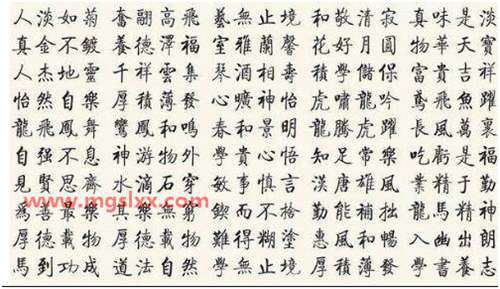 人淡如菊 奮翮高飛 藝無止境 和敬清寂 真味是淡
真金不鍍 養德澤福 室雅蘭馨 花好月圓 物華天寶
人杰地靈 千祥雲集 琴酒相壽 學儲 富貴吉祥
怡然自樂 厚積薄發 心曠神怡 虎嘯龍吟 鳶飛魚躍
龍飛鳳舞 鸞鳳和鳴 春和景明 龍騰虎躍 長風萬里
自强不息 神游物外 學貴心悟 知足常樂 吃虧是福
見賢思齊 水滴石穿 敏事慎言 漢唐雄風 業精于勤
www.mgslxx.com
爲善最樂 其樂無窮 鍥而不 勤能補拙 龍馬精神
厚德載物 厚德載物 難得糊塗 惠風和暢 入幽出朗
馬到功成 道法自然 學無止境 厚積薄發 學書養志